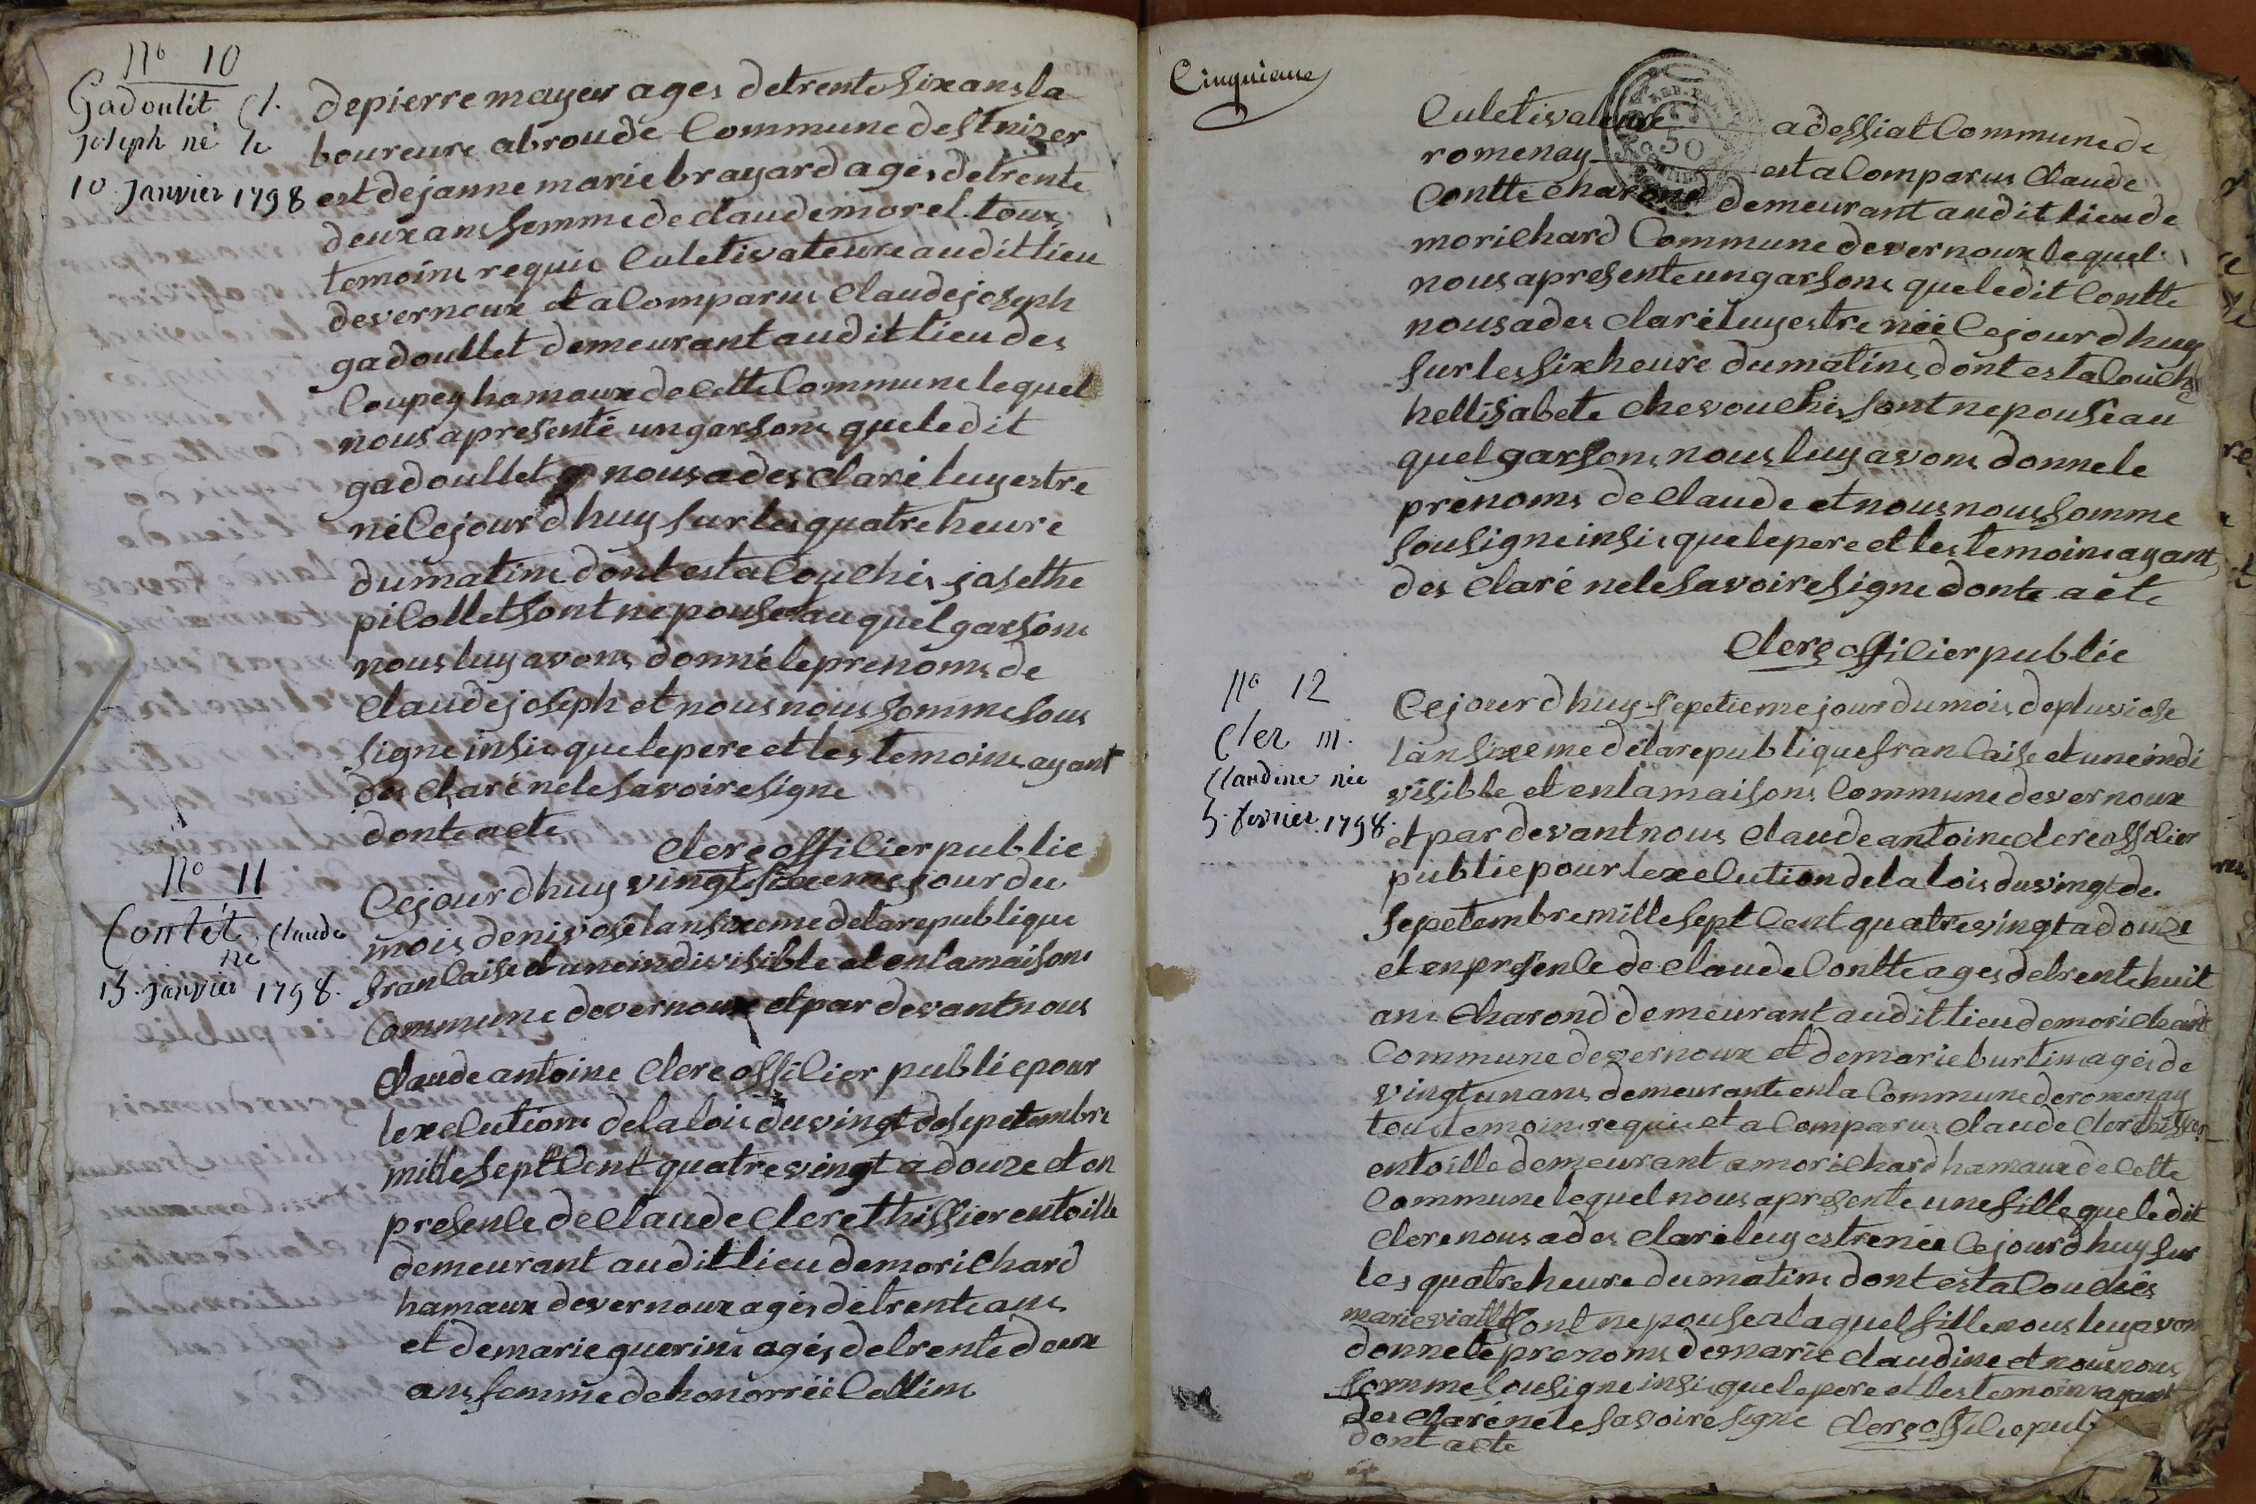 No 10
Gadoulét Cl.
Joseph né le
10 Janvier 1798
depierre mayeur ages detrente six ans la
boureure abroude Commune de St nizer
est dejanne marie brayard ages detrente
deux ans femme de claude morel tous
temoins requis Culetivateure audit lieu
devernoux et a Comparus Claude joseph
gadoullet demeurant audit lieu des
Coupey hamaux de Cette Commune lequel
nous apresenté un garsons queledit
gadoullet nous a des claré luy estre
né Cejourdhuy sur les quatre heure
dumatins dont esta Couchés josethe
piCollet sont nepouse au quel garsons
nous luy avons donné leprenoms de
Claude joseph et nous nous somme sous
signe insis quelepere et les temoins ayant
des claré nele savoire signe
donte acte
Clerc offilier public
No 11
Contét, Claude
né
15 janvier 1798.
Cejourdhuy vingt sixeme jour du
mois de nivose lan sixeme delarepublique
franCaise et uneindivisible et enlamaisons
Commune devernoux et par devant nous
Claude antoine Clerc offilier public pour
lexeCutions delalois duvingt de sepetembre
mille sept Cent quatrevingt a douze et en
presenCe de Claude Clerc thissier entoille
demeurant audit lieu demorichard
hamaux devernoux agés detrente ans
et demarie guerins agés detrente deux
ans femme dehonorréé Collins
Cinquieme
Culetivateure adessiat Commune de
REP. FRA.
50
romenay est a Comparus Claude
Contte charond demeurant audit lieu de
morichard Commune devernoux lequel
nous apresente un garsons queledit Contte
nous ades claré luy estre néé Cejourdhuy
sur les six heure dumatins dont esta Couchés
hellisabete chevouchis sont nepouse au
quel garsons nous luy avons donnele
prenoms de Claude et nous nous somme
sousigne insis quelepere et les temoins ayant
des claré nele savoire signe donte acte
Clerc offilier public
No 12
Cler m.
Claudine née
5. fevrier. 1798.
Cejourdhuy sepetieme jour dumois depluviose
lan sixeme delarepublique franCaise et uneindi
visible et enlamaisons Commune devernoux
et par devant nous Claude antoine clerc offilier
public pour lexeCution delalois duvingt de
sepetembre mille sept Cent quatrevingt a douze
et en presenCe de Claude Contte ages detrente huit
ans charond demeurant audit lieu demorichard
Commune devernoux et demarie burtin agés de
vingt un ans demeurante enla Commune deromenay
tous temoins requis et a Comparus Claude Clerc thissier
entoille demeurant amorichard hamaux de Cette
Commune lequel nous apresente une fille queledit
Clerc nous ades claré luy estre néé Cejourdhuy sur
les quatre heure dumatins dont esta Couchés
marie viallet sont nepouse alaquel fille nous luy avons
donnele prenoms demarie claudine et nous nous
somme sousigne insis quelepere et les temoins ayant
des claré nele savoire signe Clerc offilie pub
dont acte